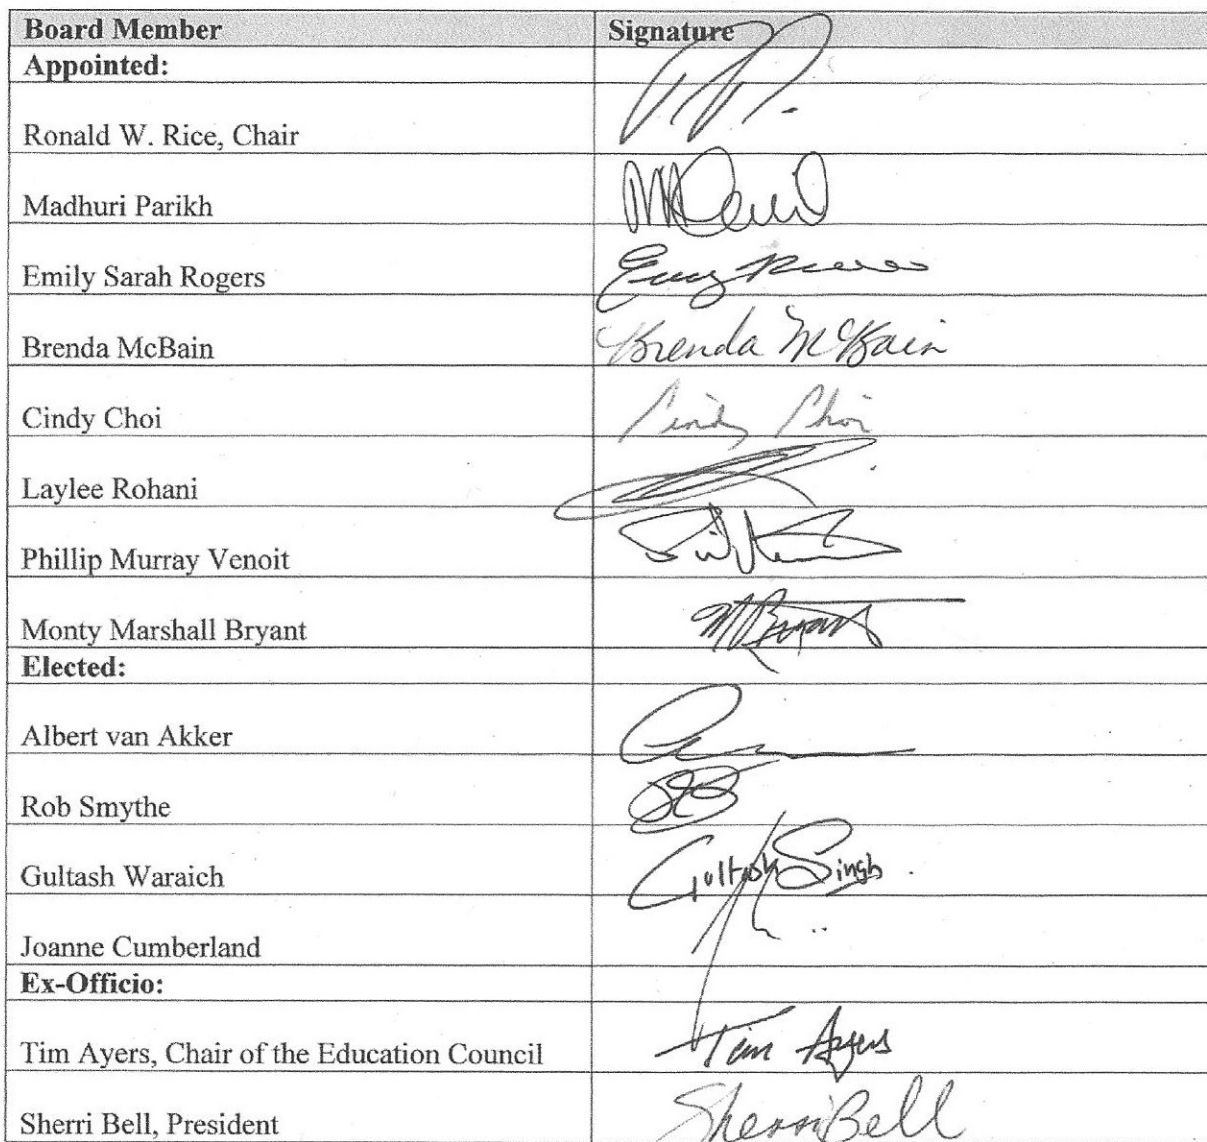 Board Member Signature
Appointed:
Ronald W. Rice, Chair
Madhuri Parikh
Emily Sarah Rogers
Brenda McBain Brenda McBain
Cindy Choi Cindy Choi
Laylee Rohani
Phillip Murray Venoit
Monty Marshall Bryant M Bryant
Elected:
Albert van Akker
Rob Smythe
Gultash Waraich Gultash Singh
Joanne Cumberland
Ex-Officio:
Tim Ayers, Chair of the Education Council Tim Ayers
Sherri Bell, President Sherri Bell